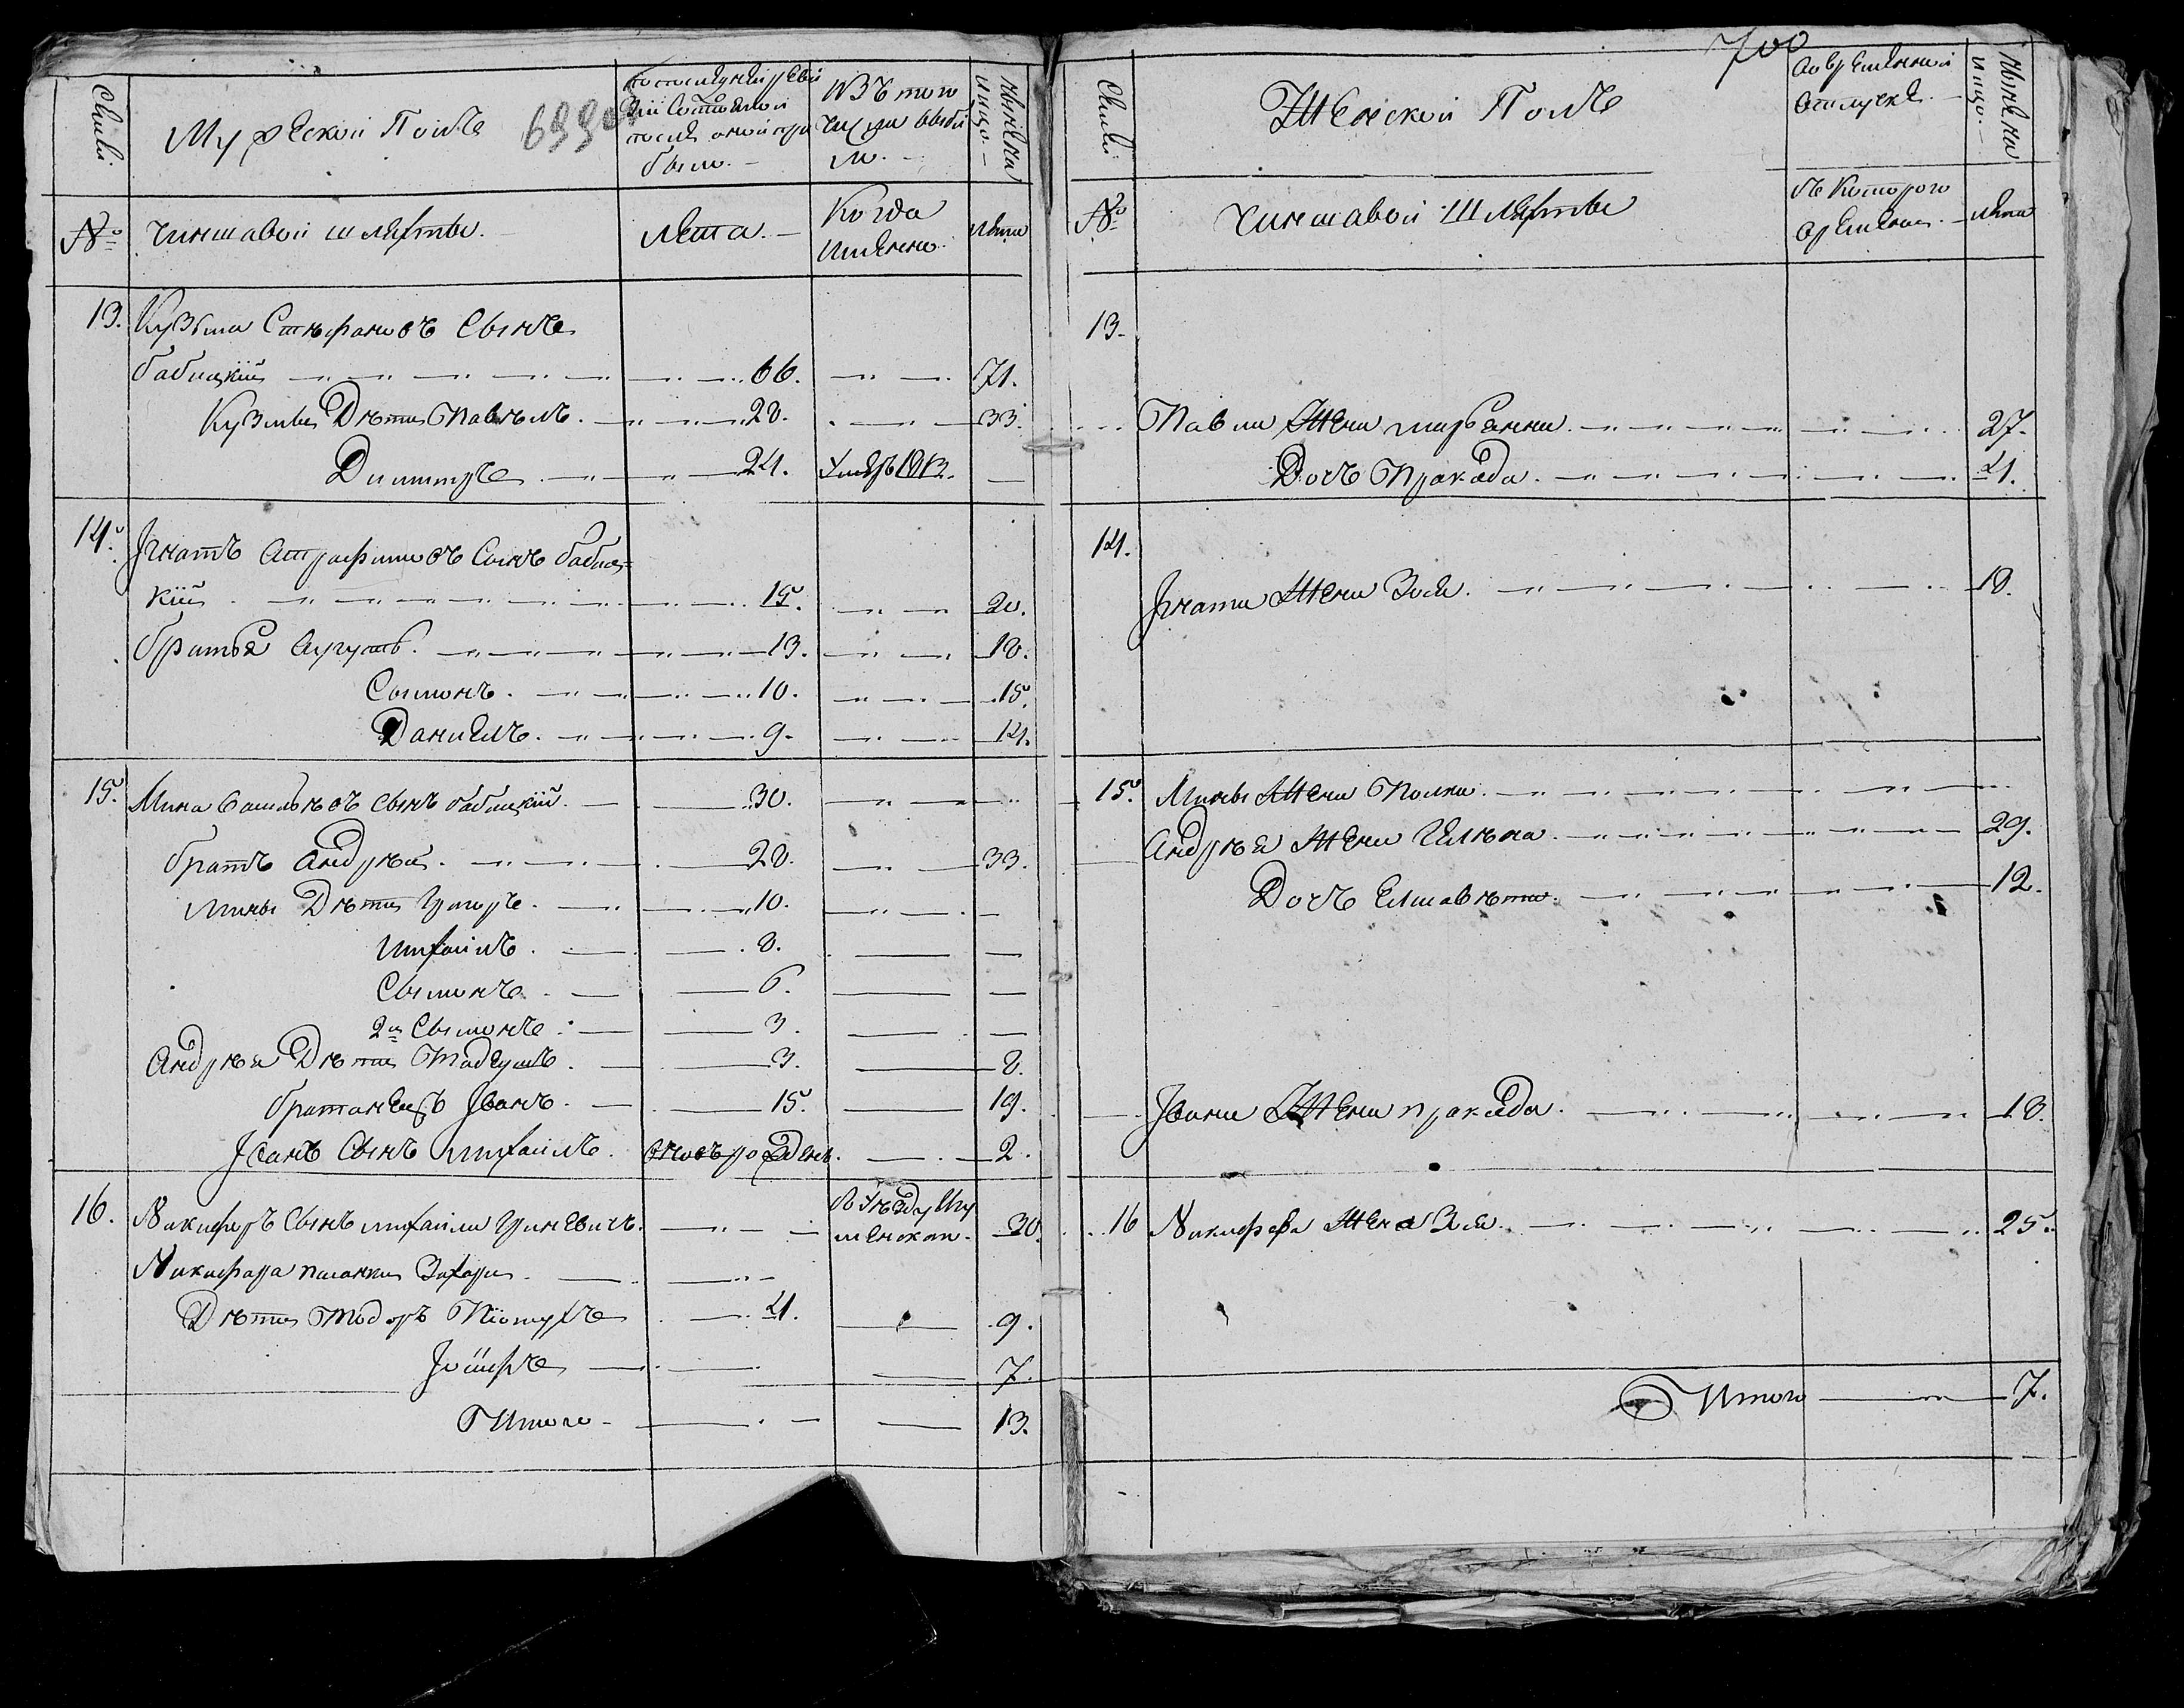 699об
Семьи
Мужескои Полъ
По последней реви
зии Состоялои
после оной при
было. —
Изъ того
числа выбы
ло. —
Ныне на
лицо. —
№
чиншавои шляхты. —
Лета. —
Когда
имѣнно.
Лета
13. Кузьма Стефановъ Сынъ
бабицкій 66. 71.
Кузьмы Дѣти Павѣлъ. 28. 33.
Димитръ 24. Умеръ 1813. —
14. Iгнатъ Атрафимовъ Сынъ бабиц=
кій 15. 20.
братья Аугустъ. 13. 18.
Сымонъ. 10. 15.
Даниелъ. 9. 14.
15. Мина Васильевъ Сынъ бабицкій. 30.
братъ Андрѣй. 28. 33.
Мины Дѣти Григоръ. 10. —
Михаилъ. 8. —
Сымонъ. 6. —
2й Сымонъ. 3. —
Андрѣя Дѣти Тадеушъ. 3. 8.
братанецъ Iванъ. 15. 19.
Iванъ Сынъ Михаилъ. вновъ рожденъ. 2.
16. Никифоръ Сынъ михаила Гриневичъ. В Уѣзду Игу
менском. 30.
Никифара пасанки Захары.
Дѣти Тодоръ Піотухъ 4. 9.
Iозифъ 7.
Итого 13.
700
Семьи
Женскои Полъ
Во временной
отлучке. —
Ныне на
лицо. —
№
чиншавои Шляхты
Съ Которого
времени. —
Лета
13.
Павла Жена марьянна. 27.
Дочъ Пракседа. 4.
14.
Iгната Жена Зося. 18.
15. Мины Жена Полюня.
Андрѣя Жена Гелѣна. 29.
Дочъ Елисавѣта. 12.
Iвана Жена пракседа. 18.
16 Никифора Жена Зося. 25.
Итого 7.